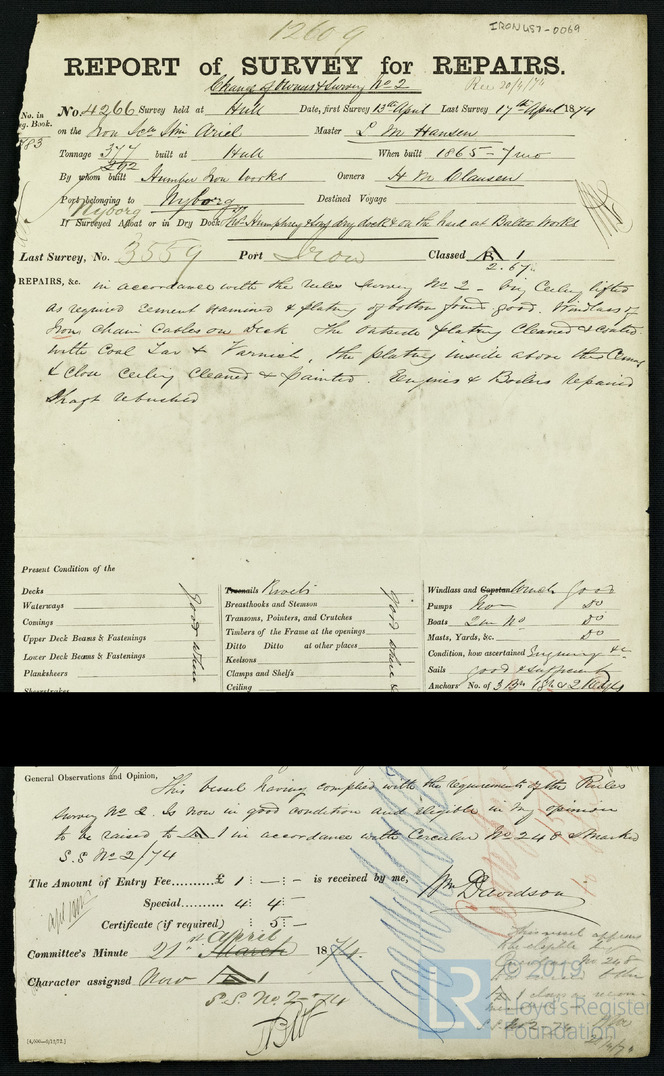 12609
IRON487-0069
REPORT of SURVEY for REPAIRS.
Change of Owners & Survey No 2
Rec 20/4/74
No. in Reg. Book.
783
No. 4266 Survey held at Hull Date, first Survey 13th April Last Survey 17th April 1874
on the Iron Scr Stm Ariel Master L M Hansen
Tonnage 377 built at Hull When built 1865 - 7 mo
By whom built Humber Iron Works Owners H M Clausen
Port belonging to Nyborg Destined Voyage
Nyborg
If Surveyed Afloat or in Dry Dock Humphrey dry dock & on the hard at Baltic Works
Last Survey, No. 3559 Port Iron Classed A 1
2.67
REPAIRS, &c. in accordance with the rules Survey No 2 - Ceiling lifted
as required cement examined & plating of bottom found good. Windlass of
Iron Chain Cables on Deck The outside plating cleaned & coated
with Coal Tar & Varnish, the plating inside above the Cement
& close ceiling cleaned & painted. Engines & Boilers repaired
Shaft rebushed
Present Condition of the
Decks
Waterways
Comings
Upper Deck Beams & Fastenings
Lower Deck Beams & Fastenings
Planksheers
Sheerstrakes
good where
Treenails Rivets
Breasthooks and Stemson
Transoms, Pointers, and Crutches
Timbers of the Frame at the openings
Ditto Ditto at other places
Keelsons
Clamps and Shelfs
Ceiling
good where
Windlass and Capstan Winch good
Pumps Do
Boats No Do
Masts, Yards, &c. Do
Condition, how ascertained
Sails good & sufficient
Anchors No. of 3 Brs 1 St & 2 Kedges
General Observations and Opinion,
This vessel having complied with the requirements of the Rules
Survey No 2. Is now in good condition and eligible in my opinion
to be raised to A 1 in accordance with Circular No 248 & marked
S.S No 2/74
The Amount of Entry Fee..........£ 1 : - : - is received by me,
Wm Davidson
Special........ 4 : 4 : -
Certificate (if required) : 5 : -
Committee's Minute 21st April March 1874.
Character assigned Now A 1
S.S. No. 2 - 74
[4,000—3/12/72.]
LR © 2019
Lloyd's Register
Foundation